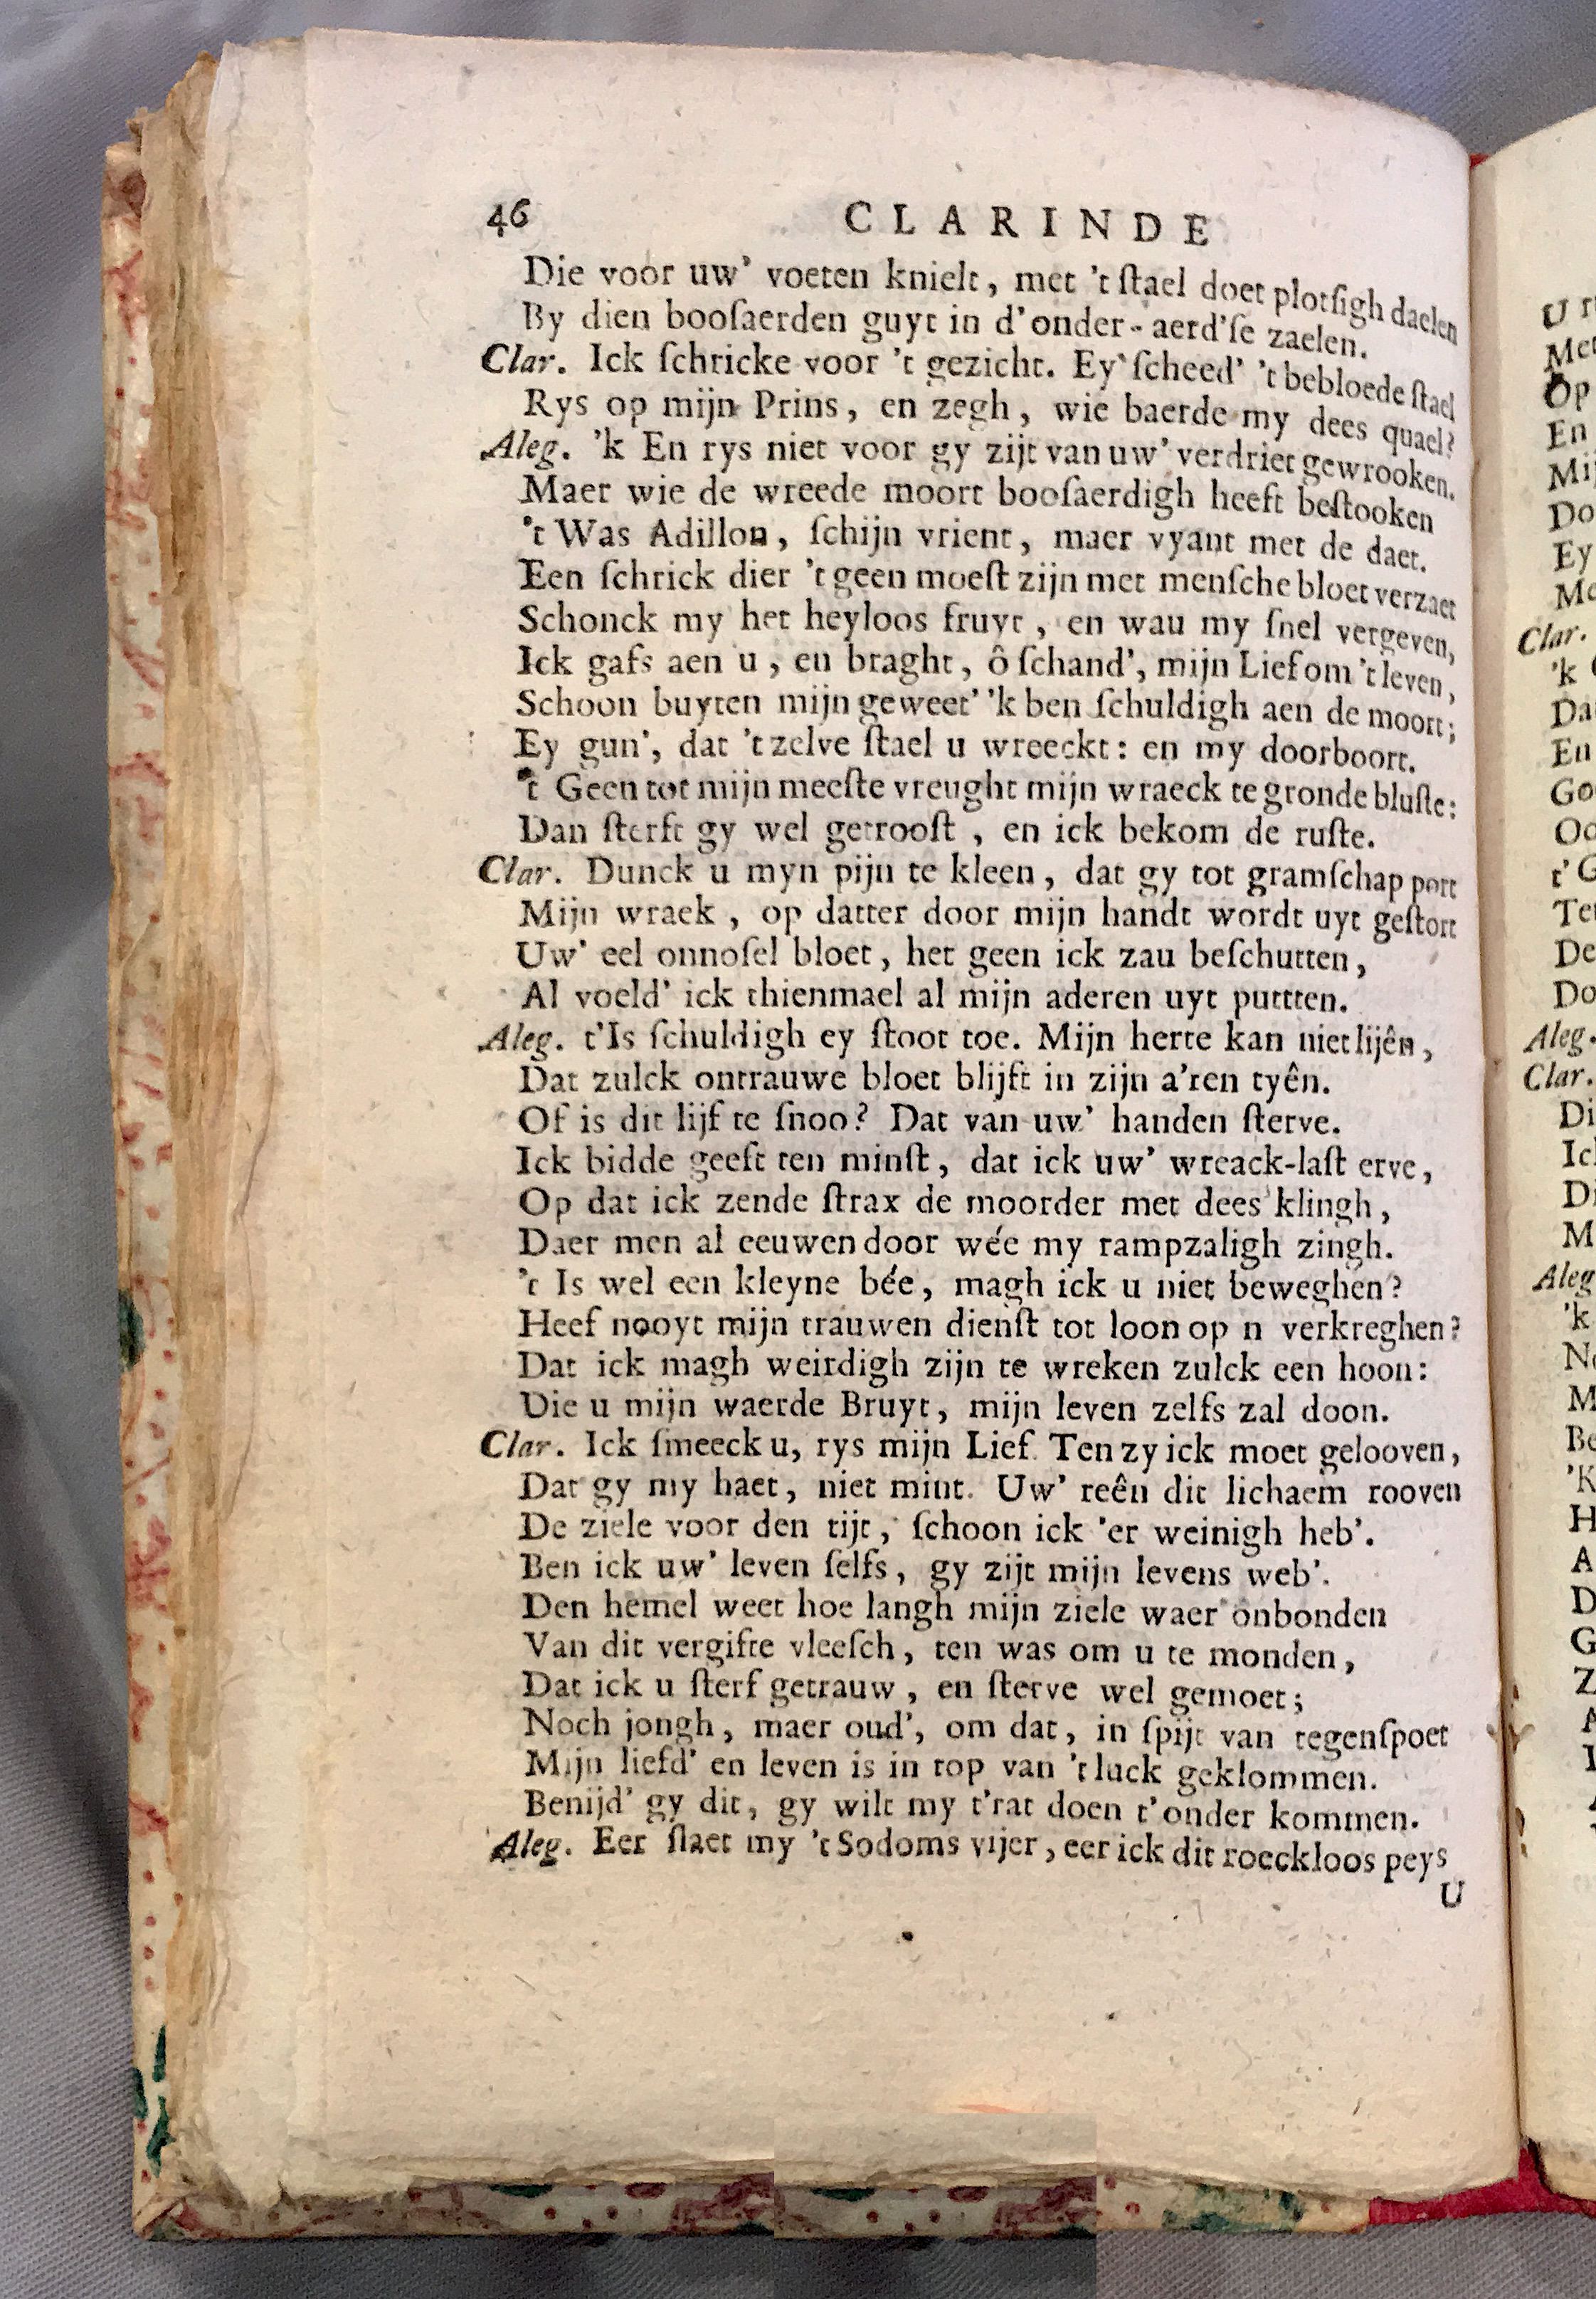 46 CLARINDE
Die voor uw' voeten knielt, met 't ſtael doet plotſigh daelen
By dien booſaerden guyt in d'onder-aerd'ſe zaelen.
Clar. Ick ſchricke voor 't gezicht. Ey ſcheed' 't bebloede ſtael
Rys op mijn Prins, en zegh, wie baerde my dees quael?
Aleg. 'k En rys niet voor gy zijt van uw' verdriet gewrooken.
Maer wie de wreede moort booſaerdigh heeft beſtooken
't Was Adillon, ſchijn vrient, maer vyant met de daet.
Een ſchrick dier 't geen moeſt zijn met menſche bloet verzaet
Schonck my het heyloos fruyt, en wau my ſnel vergeven,
Ick gafs aen u, en braght, ô ſchand', mijn Lief om 't leven,
Schoon buyten mijn geweet' 'k ben ſchuldigh aen de moort;
Ey gun', dat 't zelve ſtael u wreeckt: en my doorboort.
't Geen tot mijn meeſte vreught mijn wraeck te gronde bluſte:
Dan ſterft gy wel getrooſt, en ick bekom de ruſte.
Clar. Dunck u myn pijn te kleen, dat gy tot gramſchap port
Mijn wraek, op datter door mijn handt wordt uyt geſtort
Uw' eel onnoſel bloet, het geen ick zau beſchutten,
Al voeld' ick thienmael al mijn aderen uyt puttten.
Aleg. t'Is ſchuldigh ey ſtoot toe. Mijn herte kan niet lijên,
Dat zulck ontrauwe bloet blijft in zijn a'ren tyên.
Of is dit lijf te ſnoo? Dat van uw' handen ſterve.
Ick bidde geeft ten minſt, dat ick uw' wreack-laſt erve,
Op dat ick zende ſtrax de moorder met dees klingh,
Daer men al eeuwen door wée my rampzaligh zingh.
't Is wel een kleyne bée, magh ick u niet beweghen?
Heef nooyt mijn trauwen dienſt tot loon op n verkreghen?
Dat ick magh weirdigh zijn te wreken zulck een hoon:
Die u mijn waerde Bruyt, mijn leven zelfs zal doon.
Clar. Ick ſmeeck u, rys mijn Lief. Ten zy ick moet gelooven,
Dat gy my haet, niet mint. Uw' reên dit lichaem rooven
De ziele voor den tijt, ſchoon ick 'er weinigh heb'.
Ben ick uw' leven ſelfs, gy zijt mijn levens web'.
Den hemel weet hoe langh mijn ziele waer onbonden
Van dit vergifte vleeſch, ten was om u te monden,
Dat ick u ſterf getrauw, en ſterve wel gemoet;
Noch jongh, maer oud', om dat, in ſpijt van tegenſpoet
Mijn liefd' en leven is in top van 't luck geklommen.
Benijd' gy dit, gy wilt my t'rat doen t'onder kommen.
Aleg. Eer ſlaet my 't Sodoms vijer, eer ick dit roeckloos peys
U
Met
Op
En
Mij
Do
Ey
Clar.
'k
Da
En
Go
De
Do
Aleg.
Clar.
Di
Di
M
Aleg
'k
M
Be
'K
H
A
D
G
Z